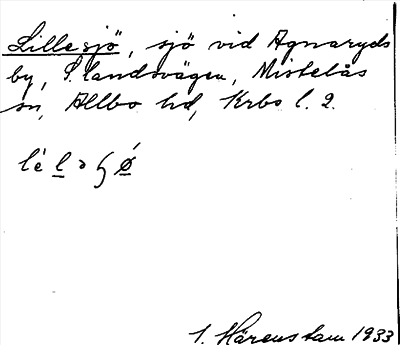 Lillesjö, sjö vid Agnaryds
by, S. landsvägen, Mistelås
sn, Allbo hd, Krbs l. 2.
I. Härenstam 1933